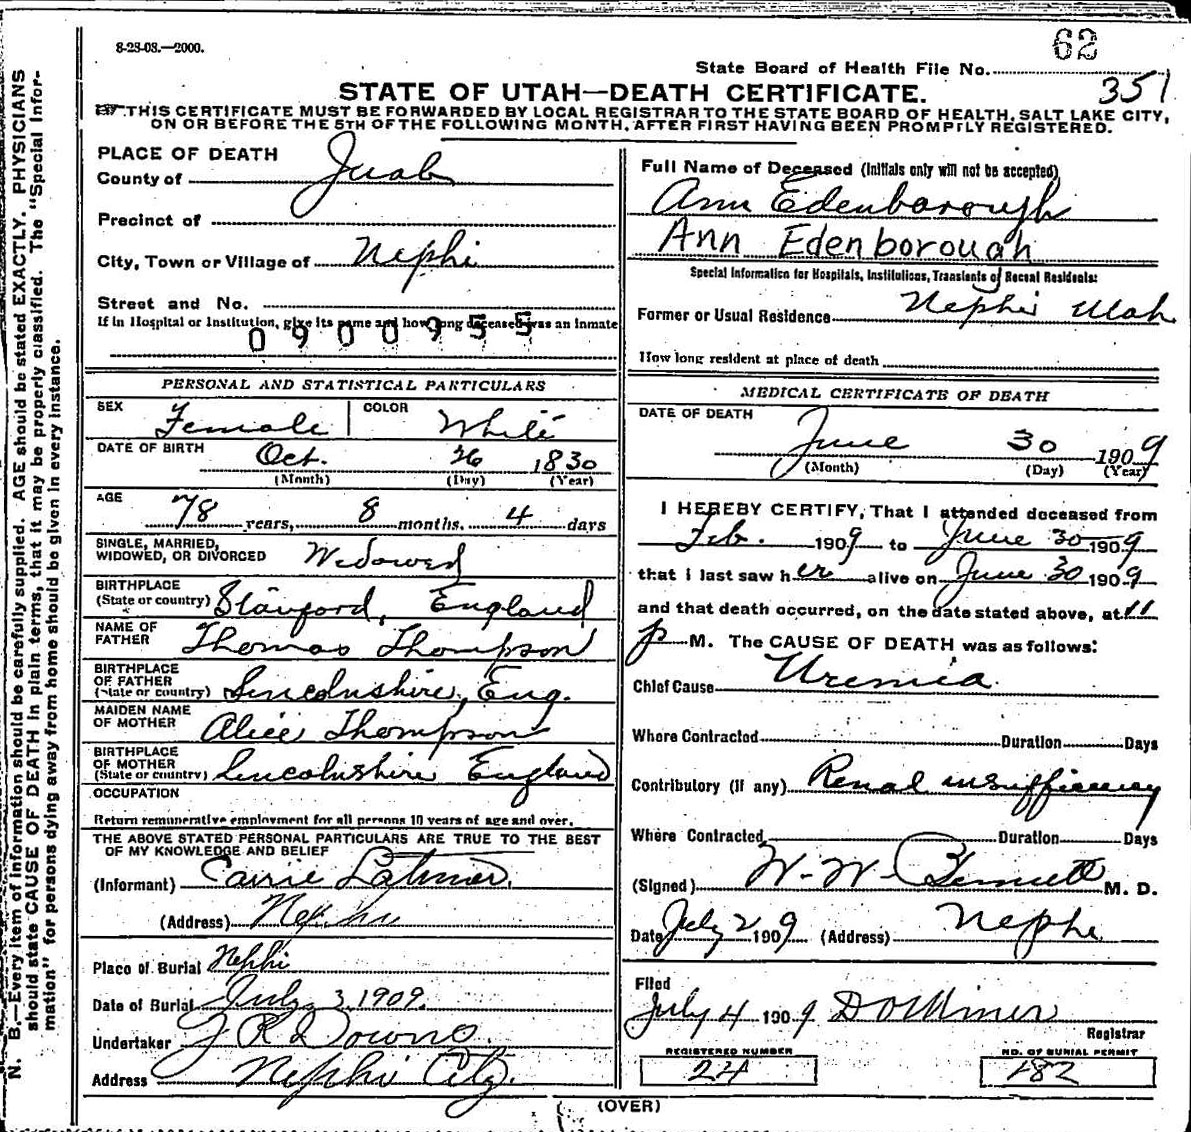 8-23-08.—2000.
62
State Board of Health File No.
351
STATE OF UTAH—DEATH CERTIFICATE.
THIS CERTIFICATE MUST BE FORWARDED BY LOCAL REGISTRAR TO THE STATE BOARD OF HEALTH, SALT LAKE CITY,
ON OR BEFORE THE 5TH OF THE FOLLOWING MONTH, AFTER FIRST HAVING BEEN PROMPTLY REGISTERED.
N. B.—Every item of information should be carefully supplied. AGE should be stated EXACTLY. PHYSICIANS
should state CAUSE OF DEATH in plain terms, that it may be properly classified. The "Special Infor-
mation" for persons dying away from home should be given in every instance.
PLACE OF DEATH
County of Juab
Precinct of
City, Town or Village of Nephi
Street and No.
If in Hospital or Institution, give its name and how long deceased was an inmate
0900955
PERSONAL AND STATISTICAL PARTICULARS
SEX Female COLOR White
DATE OF BIRTH Oct. 26 1830
(Month) (Day) (Year)
AGE 78 years, 8 months. 4 days
SINGLE, MARRIED,
WIDOWED, OR DIVORCED Widowed
BIRTHPLACE
(State or country) England
NAME OF
FATHER Thomas Thompson
BIRTHPLACE
OF FATHER
(State or country) Lincolnshire, Eng.
MAIDEN NAME
OF MOTHER Alice Thompson
BIRTHPLACE
OF MOTHER
(State or country) Lincolnshire England
OCCUPATION
Return remunerative employment for all persons 10 years of age and over.
THE ABOVE STATED PERSONAL PARTICULARS ARE TRUE TO THE BEST
OF MY KNOWLEDGE AND BELIEF
(Informant) Carrie Latimer.
(Address) Nephi
Place of Burial Nephi
Date of Burial July 3, 1909.
Undertaker Downs.
Address Nephi City.
Full Name of Deceased (Initials only will not be accepted)
Ann Edenborough
Ann Edenborough
Special Information for Hospitals, Institutions, Transients or Recent Residents:
Former or Usual Residence Nephi Utah
How long resident at place of death
MEDICAL CERTIFICATE OF DEATH
DATE OF DEATH
June 30 1909
(Month) (Day) (Year)
I HEREBY CERTIFY, That I attended deceased from
Feb. 1909 to June 30 1909
that I last saw her alive on June 30 1909
and that death occurred, on the date stated above, at 11
p M. The CAUSE OF DEATH was as follows:
Chief Cause Uremia.
Where Contracted Duration Days
Contributory (if any) Renal insufficiency
Where Contracted Duration Days
(Signed) W. W. Bennett M. D.
Date July 2 1909 (Address) Nephi.
Filed
July 4 1909 Miner
Registrar
REGISTERED NUMBER
24
NO. OF BURIAL PERMIT
182
(OVER)